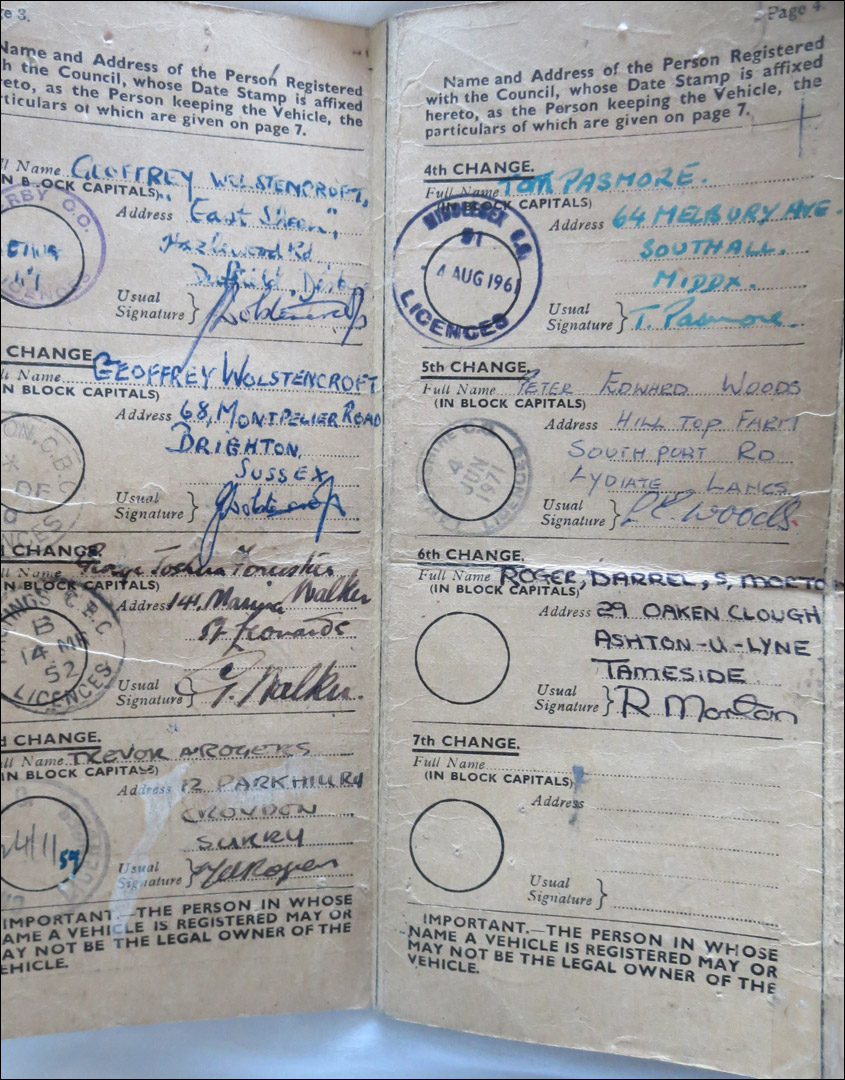 e 3.
Name and Address of the Person Registered
h the Council, whose Date Stamp is affixed
reto, as the Person keeping the Vehicle, the
rticulars of which are given on page 7.
ll Name GEOFFREY WOLSTENCROFT,
N BLOCK CAPITALS)
Address "East Sheen",
Hazlewood Rd
Duffield, Derby
Usual
Signature }
ERBY C.C.
LICENCES
CHANGE.
ll Name GEOFFREY WOLSTENCROFT
IN BLOCK CAPITALS)
Address 68, MONTPELIER ROAD
BRIGHTON,
SUSSEX
Usual
Signature }
ON, C.B.C
DE
0
NCES
d CHANGE.
ll Name George Joshua Forester Walker
N BLOCK CAPITALS)
Address 144, Marina
St Leonards
Usual
Signature } G. Walker.
HASTINGS C.B.C
B
14 MR
52
LICENCES
d CHANGE.
ll Name TREVOR A ROGERS
IN BLOCK CAPITALS)
Address 12 PARKHILL Rd
CROYDON
SURRY
Usual
Signature }
24/11 59
IMPORTANT.—THE PERSON IN WHOSE
AME A VEHICLE IS REGISTERED MAY OR
AY NOT BE THE LEGAL OWNER OF THE
EHICLE.
Page 4.
Name and Address of the Person Registered
with the Council, whose Date Stamp is affixed
hereto, as the Person keeping the Vehicle, the
particulars of which are given on page 7.
4th CHANGE.
Full Name TOM PASMORE.
(IN BLOCK CAPITALS)
Address 64 MELBURY AVE.
SOUTHALL.
MIDDX.
Usual
Signature } T. Pasmore.
MIDDLESEX C.C.
4 AUG 1961
LICENCES
5th CHANGE.
Full Name PETER EDWARD WOODS
(IN BLOCK CAPITALS)
Address HILL TOP FARM
SOUTHPORT RD
LYDIATE LANCS
Usual
Signature } P.E. Woods.
4
JUN
1971
6th CHANGE.
Full Name ROGER, DARREL, S, MORTO
(IN BLOCK CAPITALS)
Address 29 OAKEN CLOUGH
ASHTON-U-LYNE
TAMESIDE
Usual
Signature } R Morton
7th CHANGE.
Full Name
(IN BLOCK CAPITALS)
Address
Usual
Signature }
IMPORTANT.—THE PERSON IN WHOSE
NAME A VEHICLE IS REGISTERED MAY OR
MAY NOT BE THE LEGAL OWNER OF THE
VEHICLE.